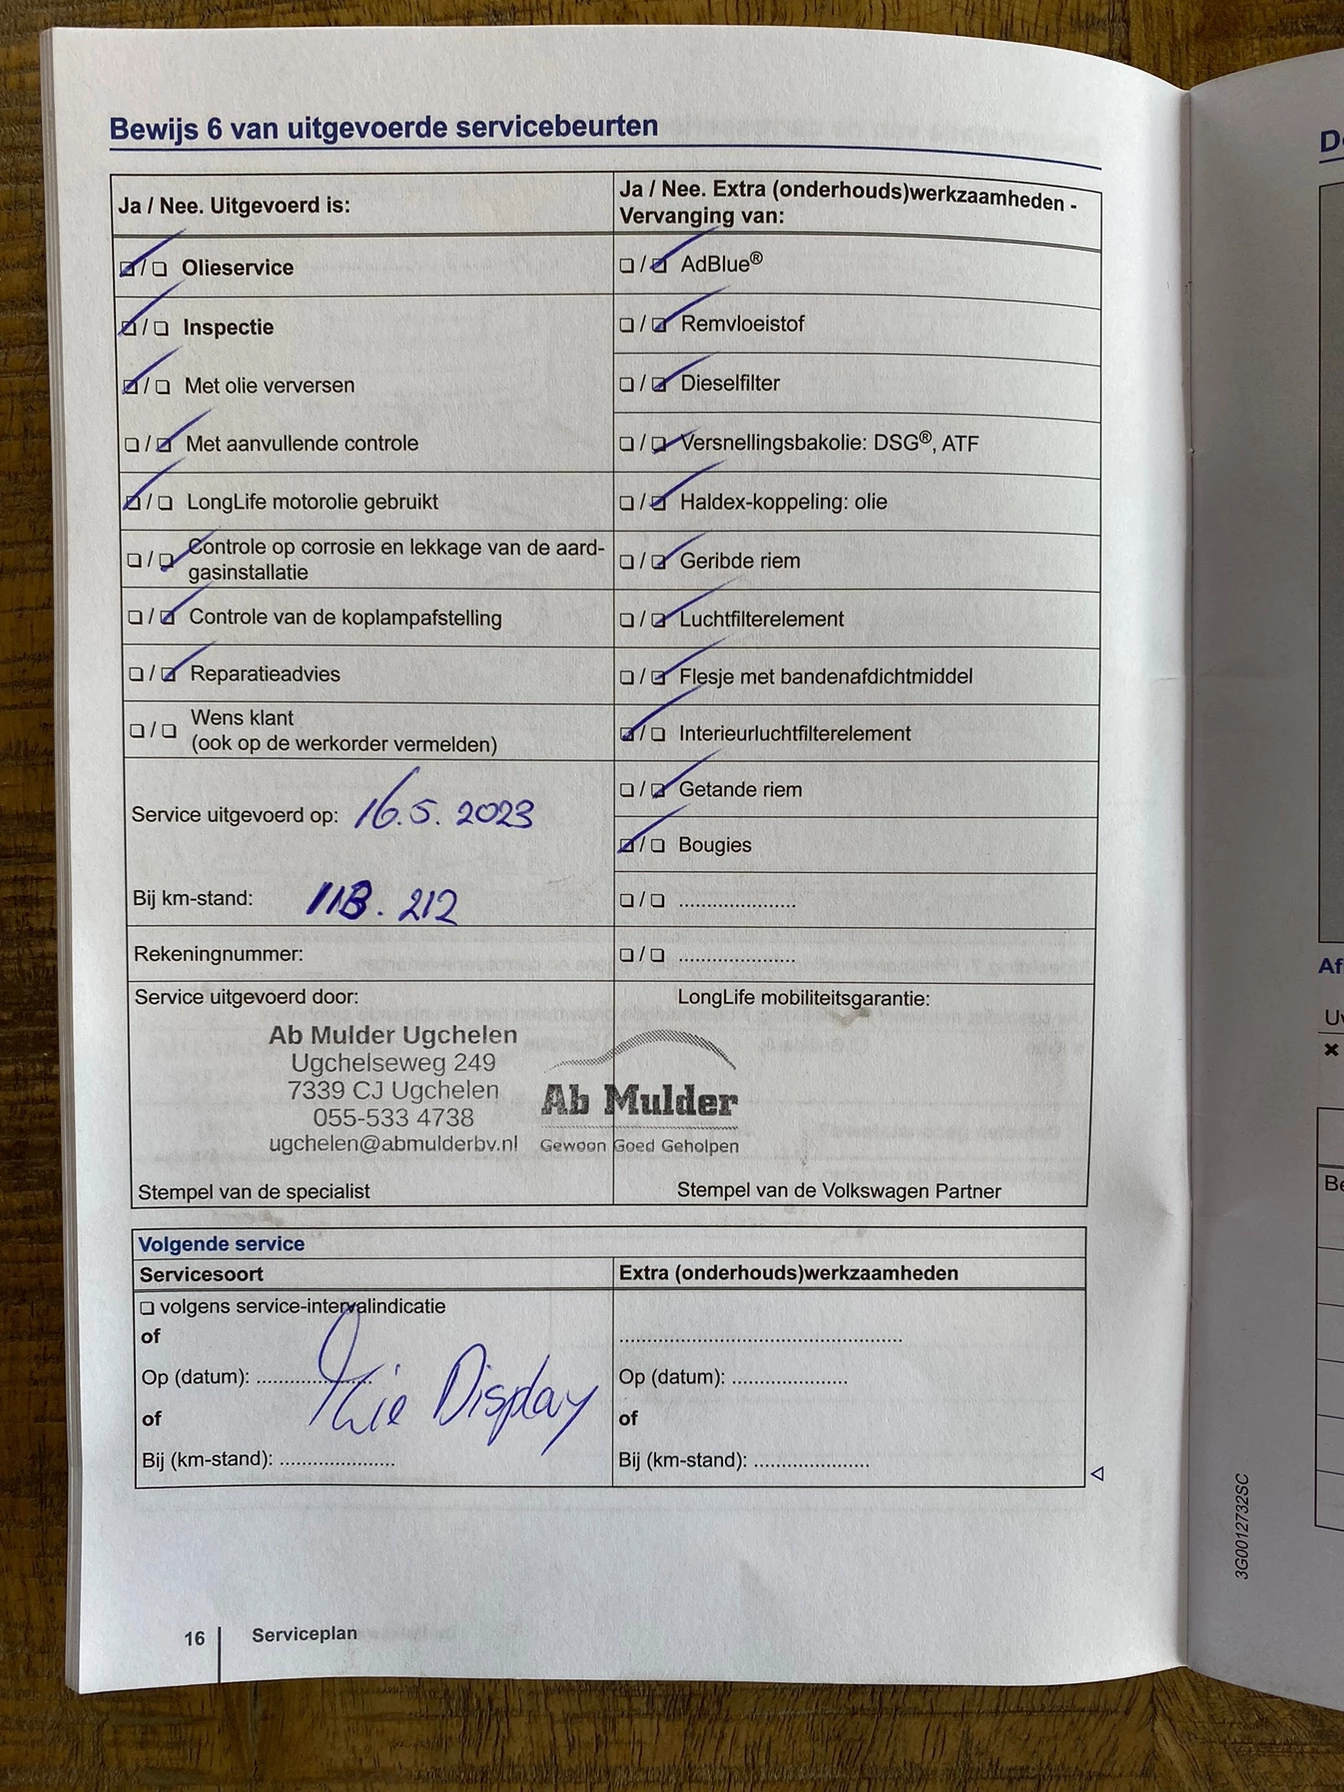 Bewijs 6 van uitgevoerde servicebeurten
Ja / Nee. Uitgevoerd is:
❑ / ❑ Olieservice
❑ / ❑ Inspectie
❑ / ❑ Met olie verversen
❑ / ❑ Met aanvullende controle
❑ / ❑ LongLife motorolie gebruikt
❑ / ❑ Controle op corrosie en lekkage van de aard-
gasinstallatie
❑ / ❑ Controle van de koplampafstelling
❑ / ❑ Reparatieadvies
❑ / ❑ Wens klant
(ook op de werkorder vermelden)
Service uitgevoerd op: 16.5.2023
Bij km-stand: 118.212
Rekeningnummer:
Ja / Nee. Extra (onderhouds)werkzaamheden -
Vervanging van:
❑ / ❑ AdBlue®
❑ / ❑ Remvloeistof
❑ / ❑ Dieselfilter
❑ / ❑ Versnellingsbakolie: DSG®, ATF
❑ / ❑ Haldex-koppeling: olie
❑ / ❑ Geribde riem
❑ / ❑ Luchtfilterelement
❑ / ❑ Flesje met bandenafdichtmiddel
❑ / ❑ Interieurluchtfilterelement
❑ / ❑ Getande riem
❑ / ❑ Bougies
❑ / ❑ ......................
❑ / ❑ ......................
Service uitgevoerd door:
Ab Mulder Ugchelen
Ugchelseweg 249
7339 CJ Ugchelen
055-533 4738
ugchelen@abmulderbv.nl
Stempel van de specialist
LongLife mobiliteitsgarantie:
Ab Mulder
Gewoon Goed Geholpen
Stempel van de Volkswagen Partner
Volgende service
Servicesoort
❑ volgens service-intervalindicatie
of
Op (datum): ......................
Zie Display
of
Bij (km-stand): ......................
Extra (onderhouds)werkzaamheden
......................................................
Op (datum): ......................
of
Bij (km-stand): ......................
16
Serviceplan
3G0012732SC